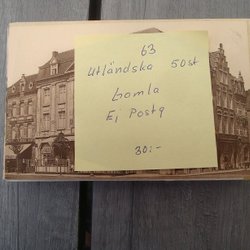 63
Utländska 50st
Gamla
Ej Postg
30:-